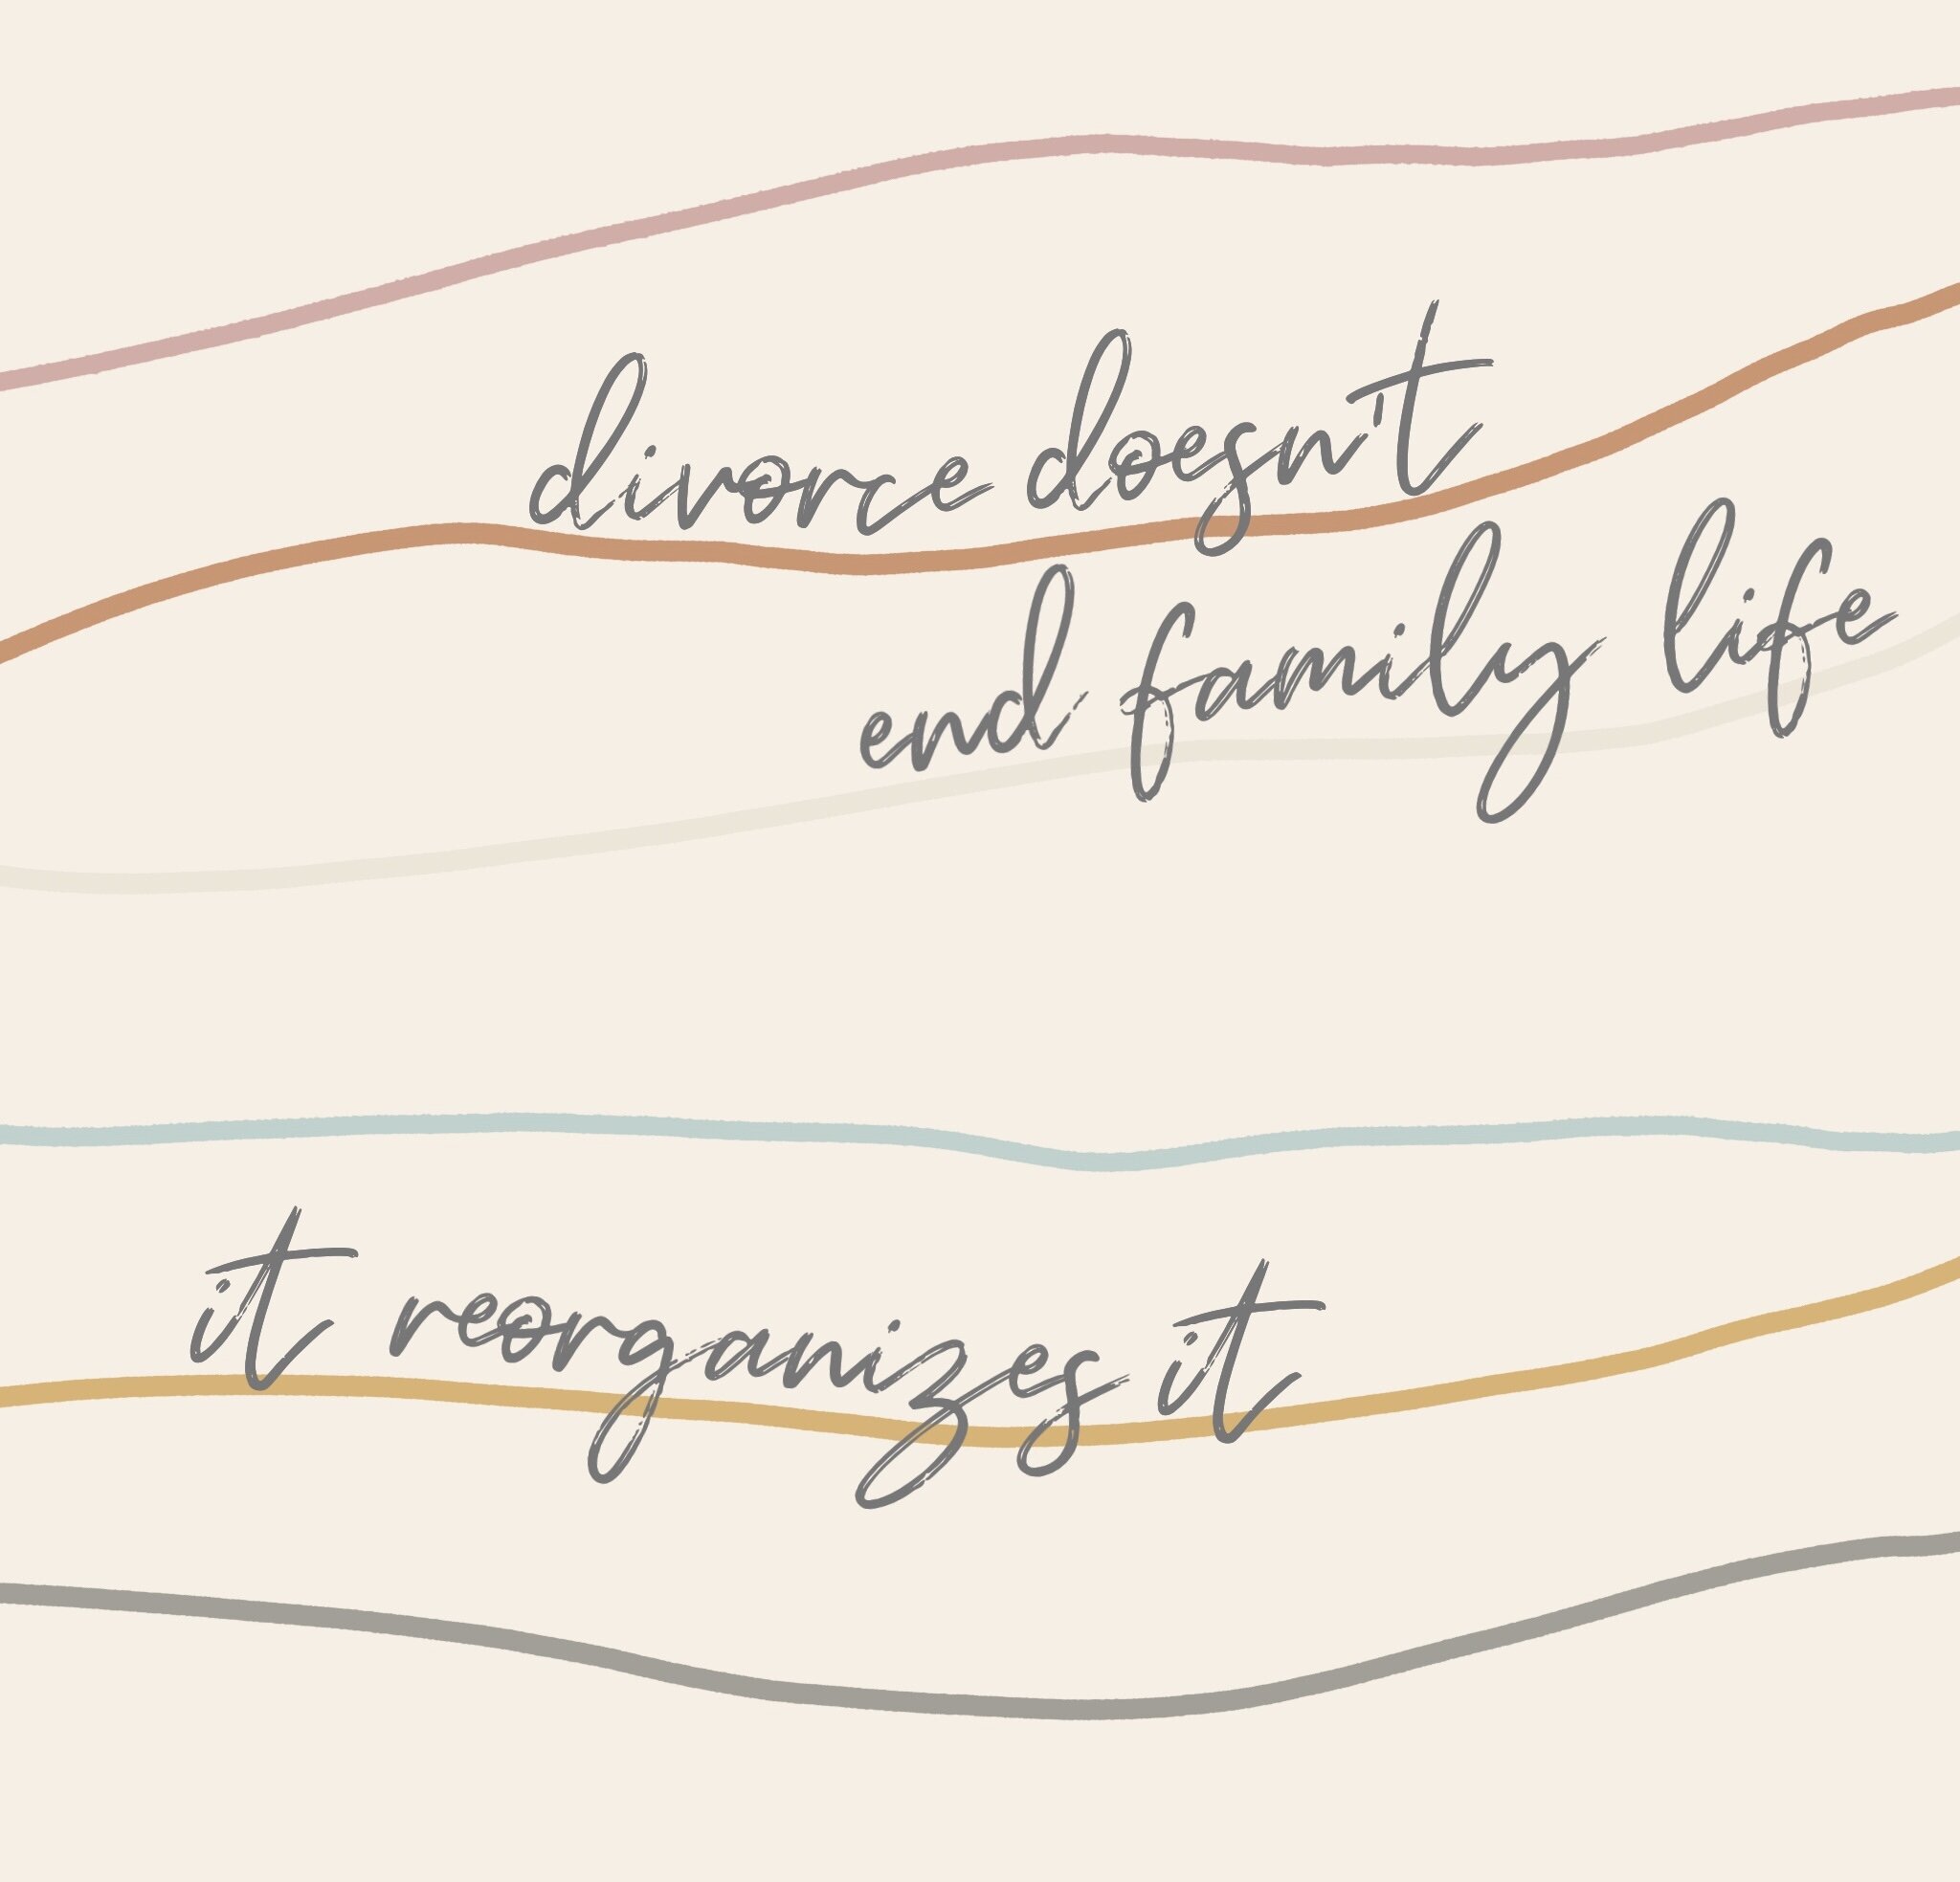 divorce doesn't
end family life
it reorganizes it